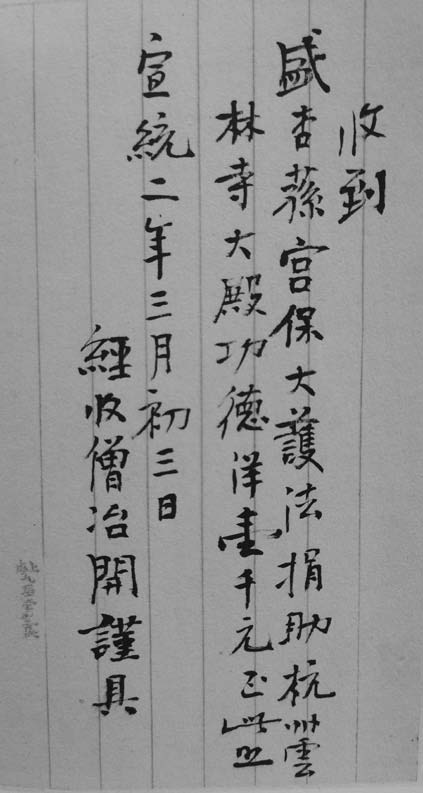 收到
盛杏蓀宮保大護法捐助杭州雲
林寺大殿功德洋壹千元正此照
宣統二年三月初三日
經收僧冶開謹具